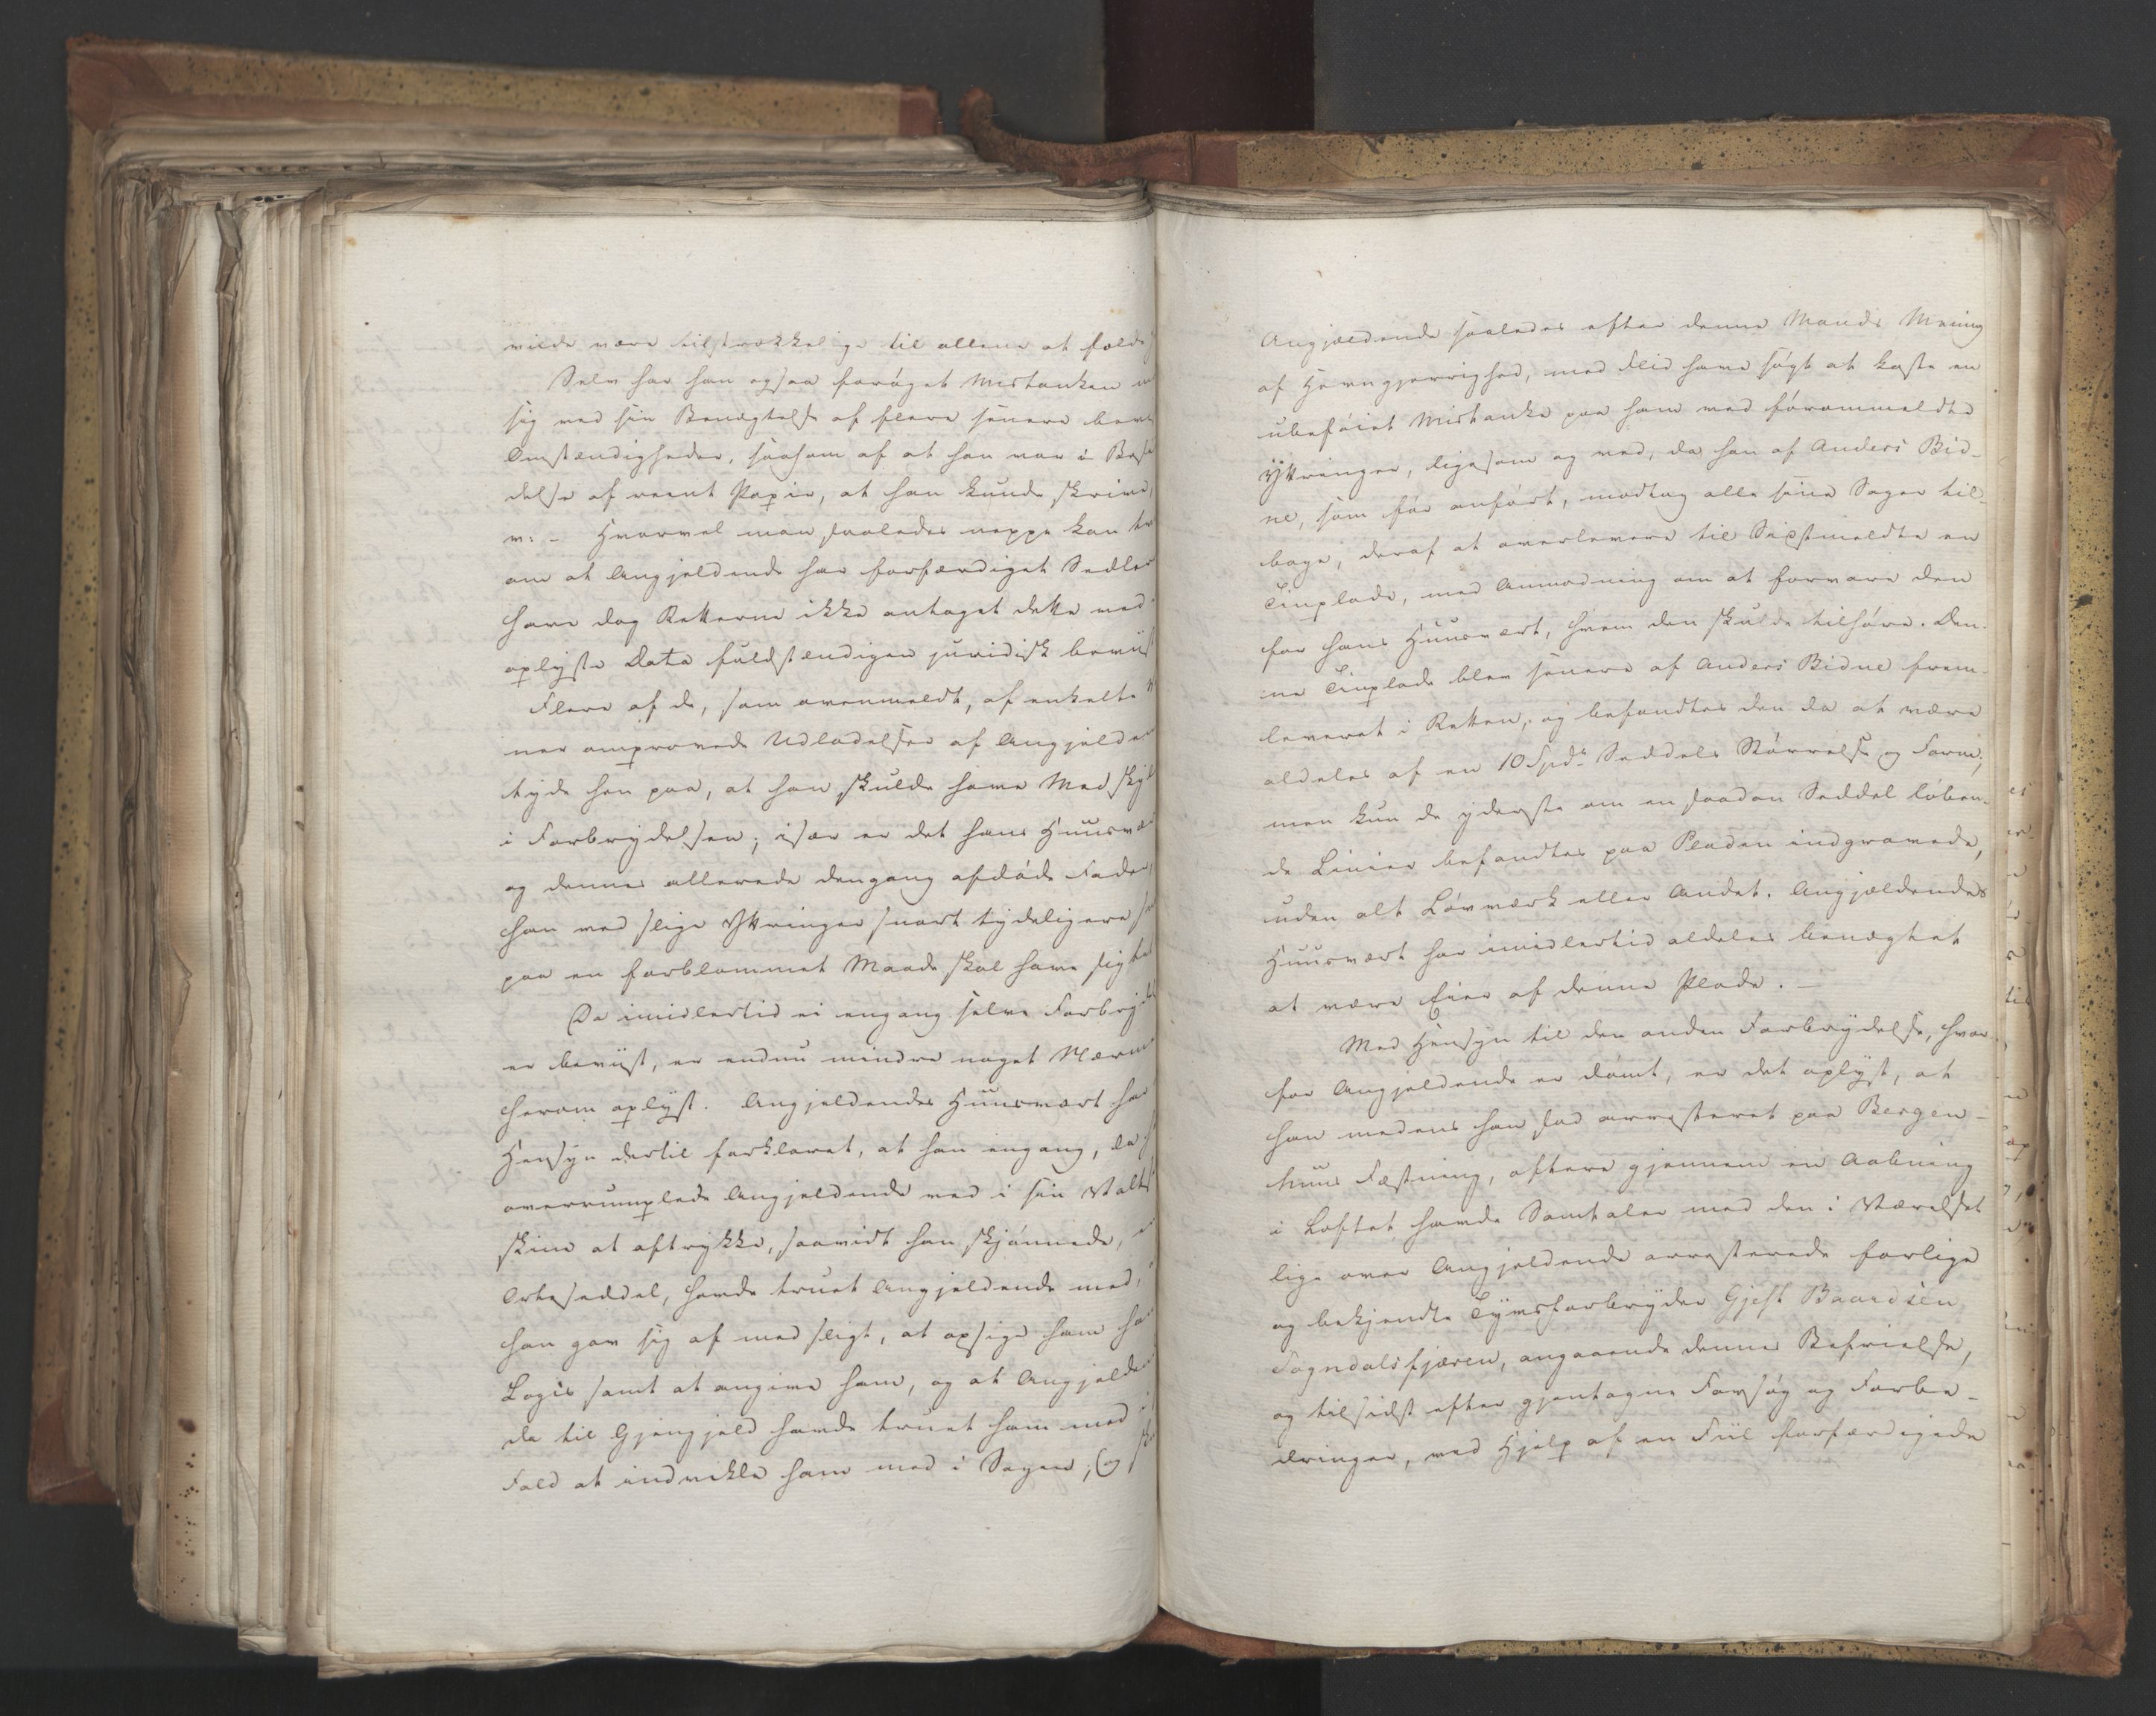 vilde være tilstrækkelige til allene at fælde
Selv har han ogsaa forøget Mistanken
sig ved sin Benægtelse af flere senere
Omstændigheder, saasom af at han var i
delse af reent Papir, at han kunde skrive,
v: - Hvorvel man saaledes neppe kan
om at Angjeldende har forfærdiget Sedler
have dog Retterne ikke antaget dette ved
oplyste Data fuldstændigen juridisk beviist
Flere af de, som ovenmeldt, af enkelte
ner omprovede Udladelser af Angjelden
tyde hen paa, at han skulde have Medskyl
i Forbrydelsen; især er det hans Huusvæ
og dennes allerede dengang afdøde Fader,
han ved slige Yttringer snart tydeligere
paa en forblommet Maade skal have sigtet
Da imidlertid ei engang selve Forbry
er beviist, er endnu mindre noget Nærme
herom oplyst. Angjeldendes Huusvært har
Hensyn dertil forklaret, at han engang, da
overrumplede Angjeldende ved i sin
skine at aftrykke, saavidt han skjønnede,
Orteseddel, havde truet Angjeldende med,
han gav sig af med sligt, at opsige ham
Logis samt at angive ham, og at Angjelden
da til Gjengjeld havde truet ham med i
Fald at indvikle ham med i Sagen; (og
Angjældende saaledes efter denne Mands Mening
af Hevngjerrighed, med Flid have søgt at kaste en
ubeføiet Mistanke paa ham ved førommeldte
Yttringer, ligesom og ved, da han af Anders Bid-
ne, som før anført, modtog alle sine Sager til-
bage, deraf at overlevere til Sidstmeldte en
Tinplade, med Anmodning om at forvare den
for hans Huusvært, hvem den skulde tilhøre. Den-
ne Tinplade blev senere af Anders Bidne frem-
leveret i Retten, og befandtes den da at være
aldeles af en 10 Spd: Seddels Størrelse og Form,
men kun de yderste om en saadan Seddel løben-
de Linier befandtes paa Pladen indgravede,
uden alt Løvværk eller Andet. Angjældendes
Huusvært har imidlertid aldeles benægtet
at være Eier af denne Plade. -
Med Hensyn til den anden Forbrydelse, hvor-
for Angjeldende er dømt, er det oplyst, at
han medens han sad arresteret paa Bergen-
huus Fæstning, oftere gjennem en Aabning
i Loftet havde Samtaler med den i Værelset
lige over Angjeldende arresterede farlige
og bekjendte Tyvsforbryder Gjest Baardsen
Sogndalsfjæren, angaaende dennes Befrielse,
og tilsidst efter gjentagne Forsøg og Forbe-
dringer, ved Hjelp af en Fiil forfærdigede